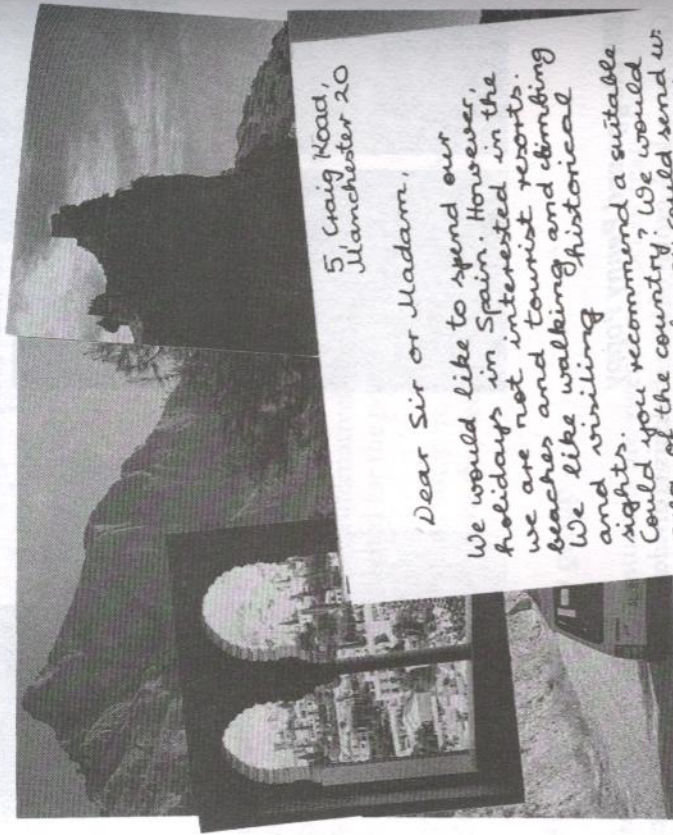 5, Craig Road,
Manchester 20
Dear Sir or Madam,
We would like to spend our
holidays in Spain. However,
we are not interested in the
beaches and tourist resorts.
We like walking and climbing
and visiting historical
sights.
Could you recommend a suitable
area of the country? We would
could send us